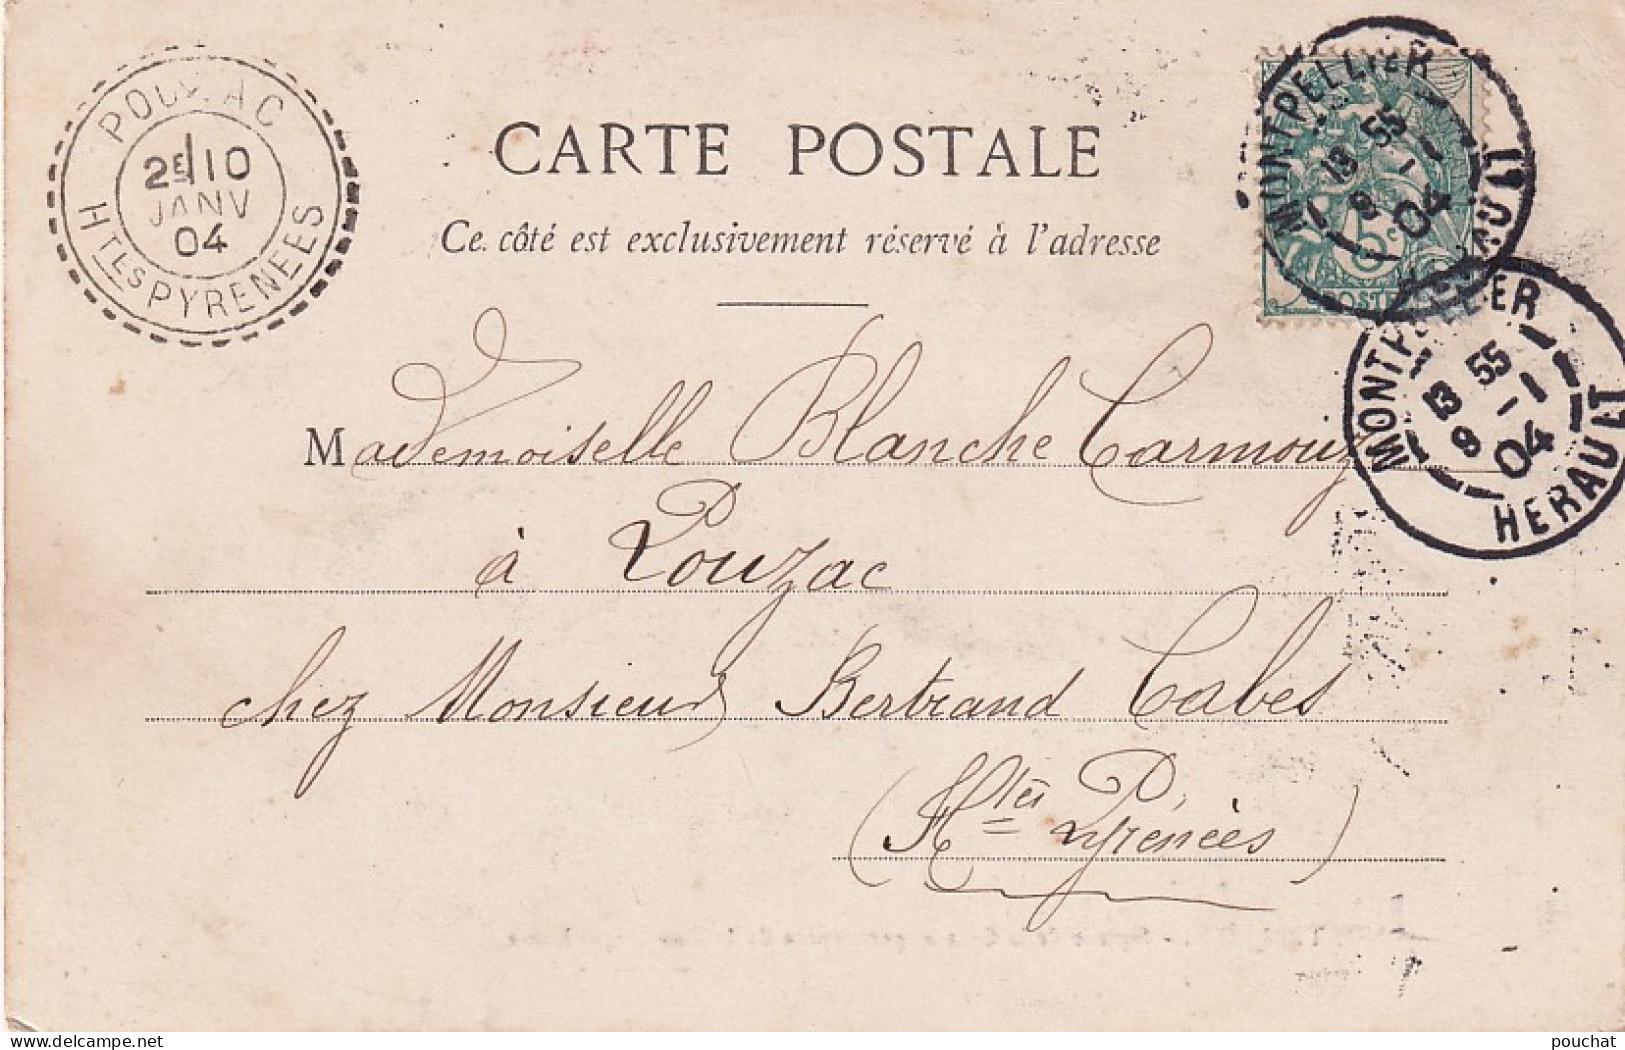 POUZAC
2E 10
JANV
04
Htes PYRENEES
CARTE POSTALE
Ce côté est exclusivement réservé à l'adresse
MONTPELLIER
13 55
9 -1
04
HERAULT
5c
POSTES
MONTPELLIER
13 55
9 -1
04
HERAULT
Mademoiselle Blanche Carmouze
à Pouzac
chez Monsieur Bertrand Cabes
(Htes Pyrénées)
pouchat